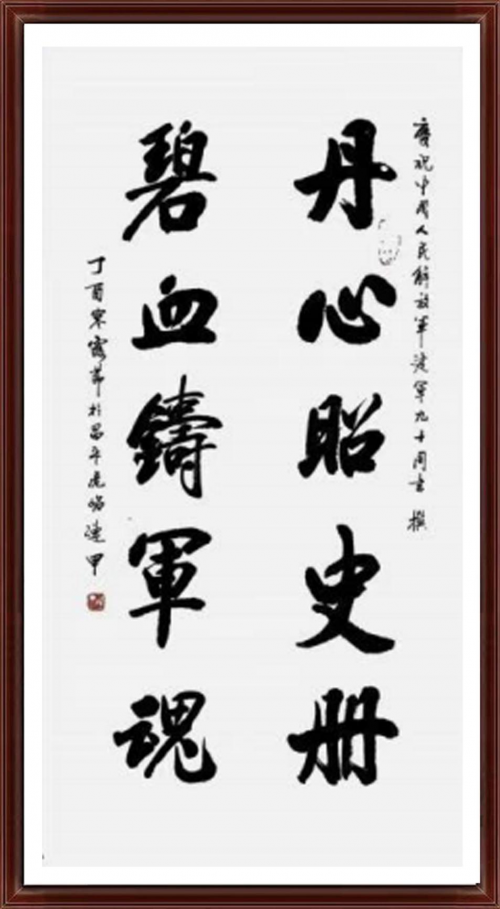 慶祝中國人民解放軍建軍九十周年 撰
丹心昭史册
碧血鑄軍魂
丁酉寒露節於昌平虎峪建甲